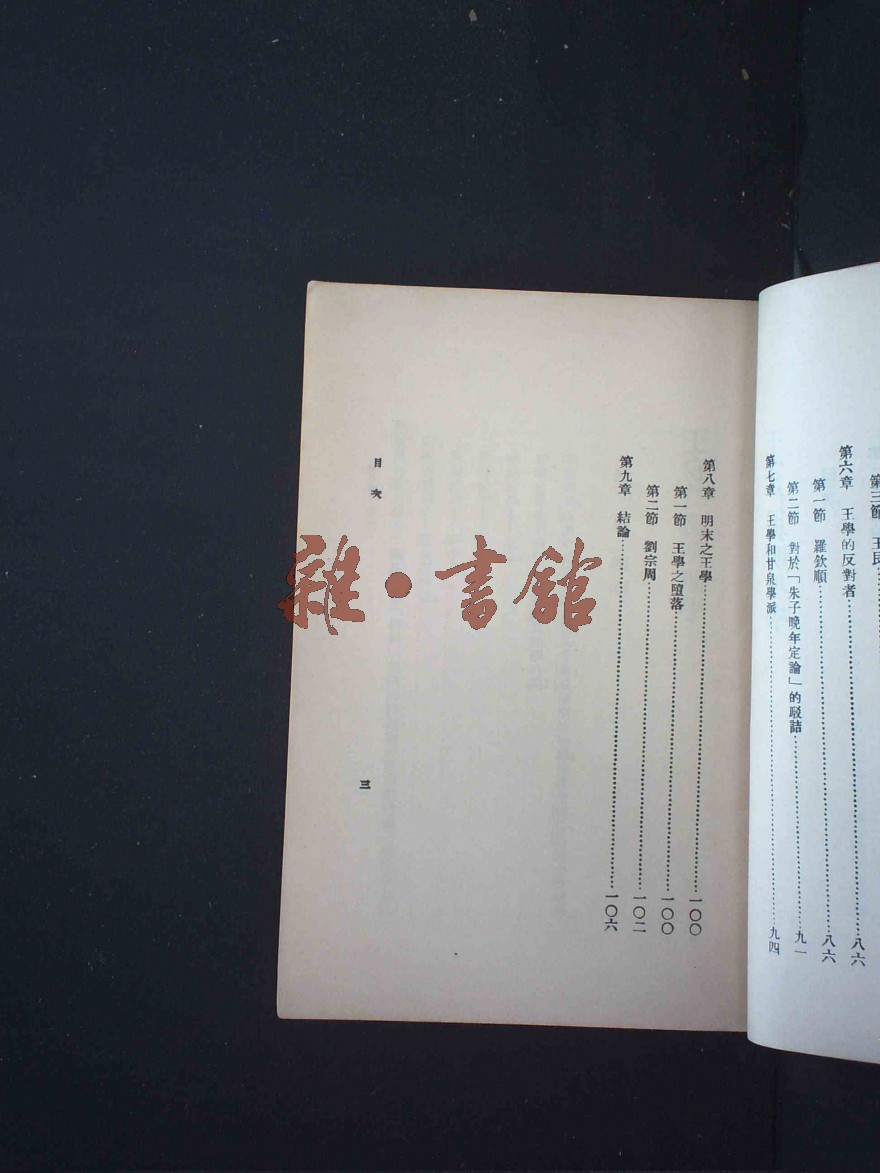 第三節 王艮
第六章 王學的反對者……八六
第一節 羅欽順……八六
第二節 對於「朱子晚年定論」的駁詰……九一
第七章 王學和甘泉學派……九四
第八章 明末之王學……一〇〇
第一節 王學之墮落……一〇〇
第二節 劉宗周……一〇二
第九章 結論……一〇六
目次
三
雜·書館